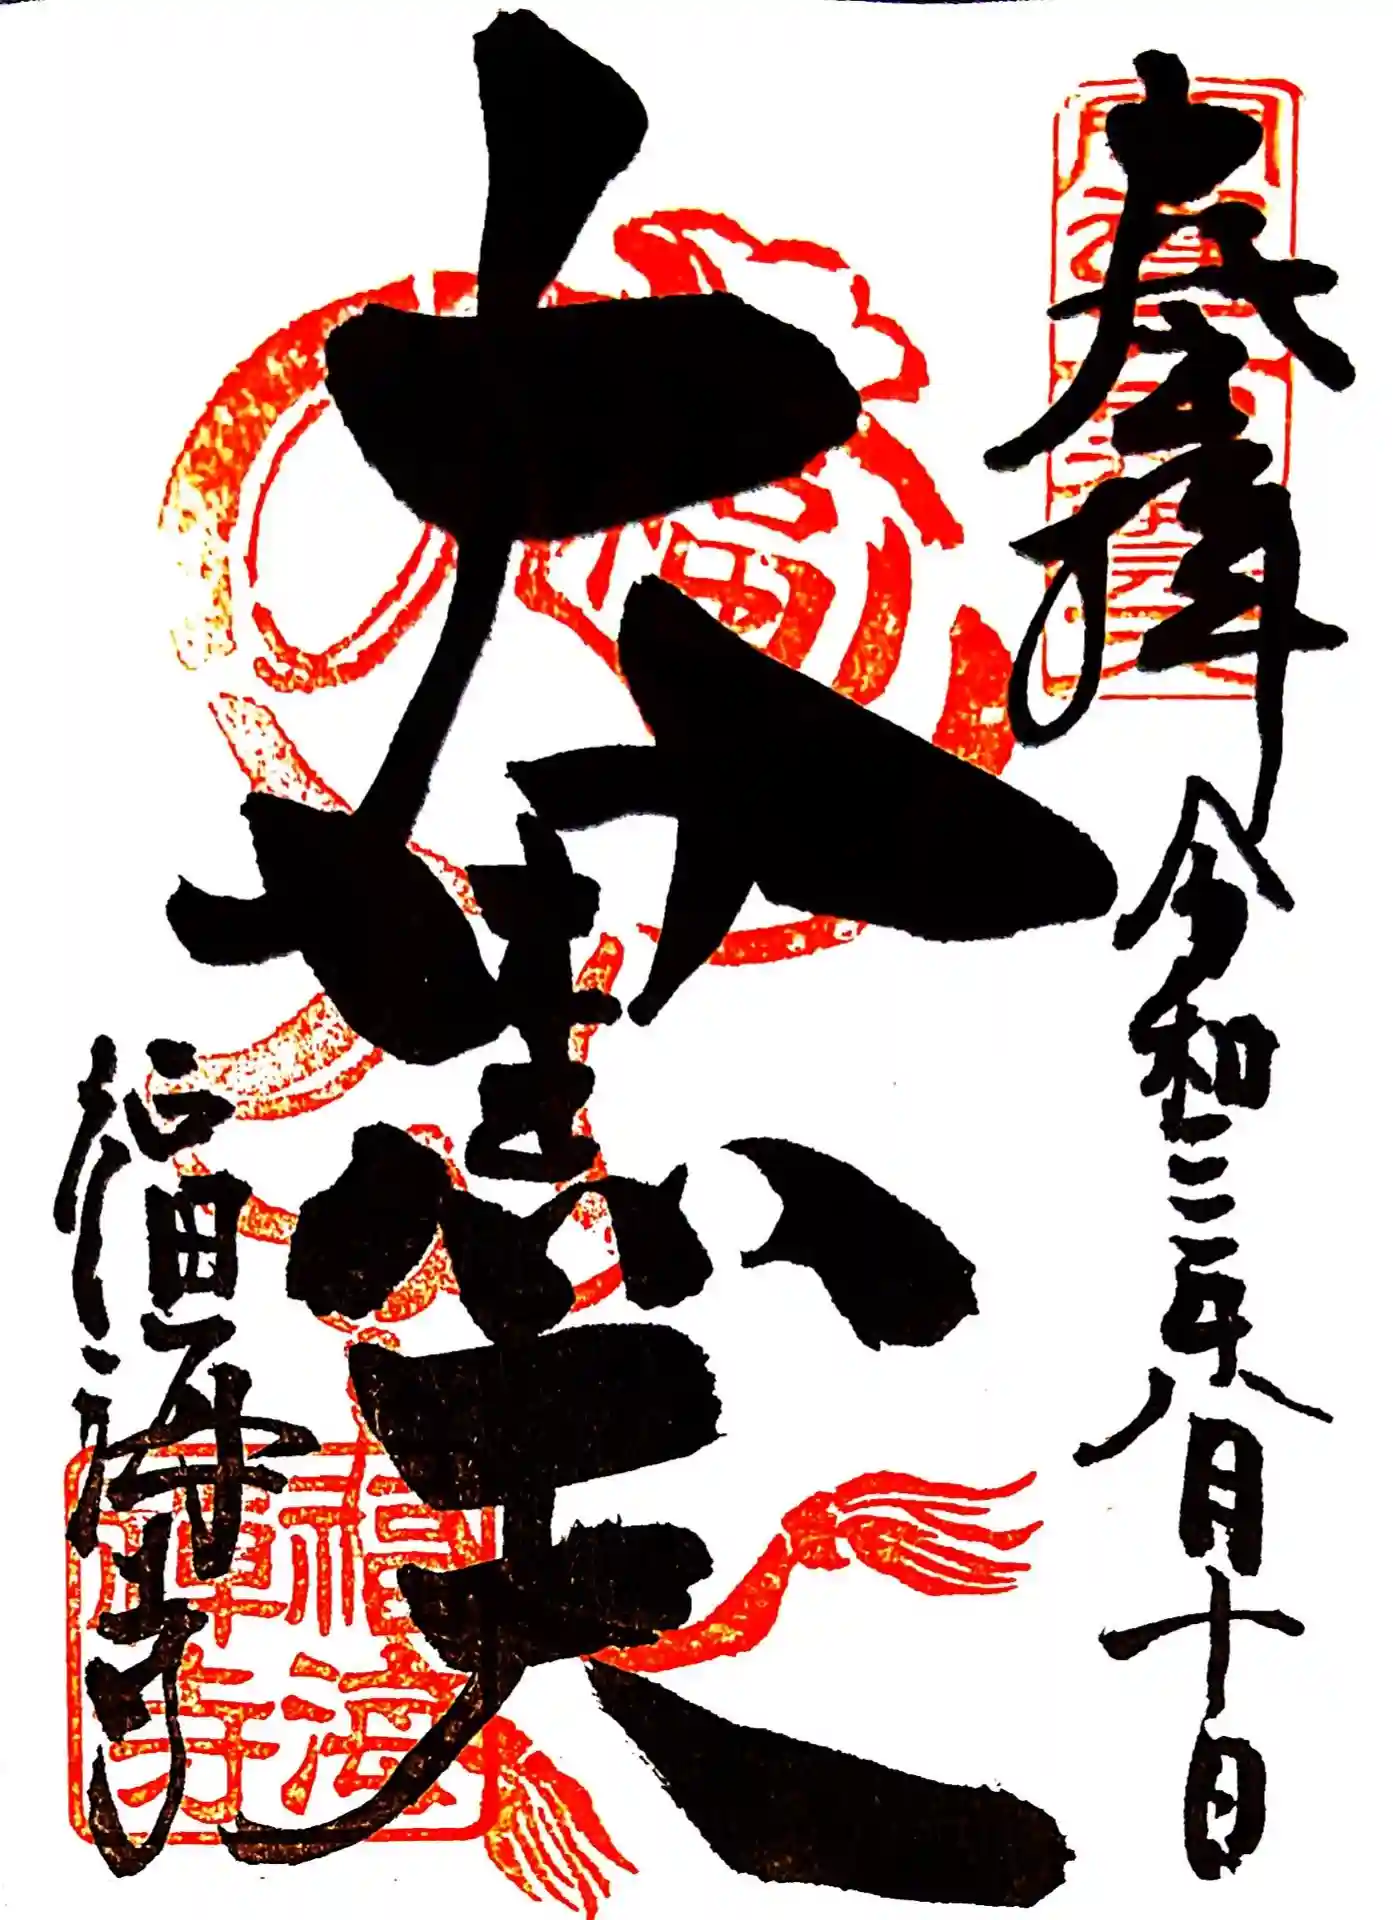 奉拝 令和三年八月十日
大黒天
福海寺
福
福海
禅寺